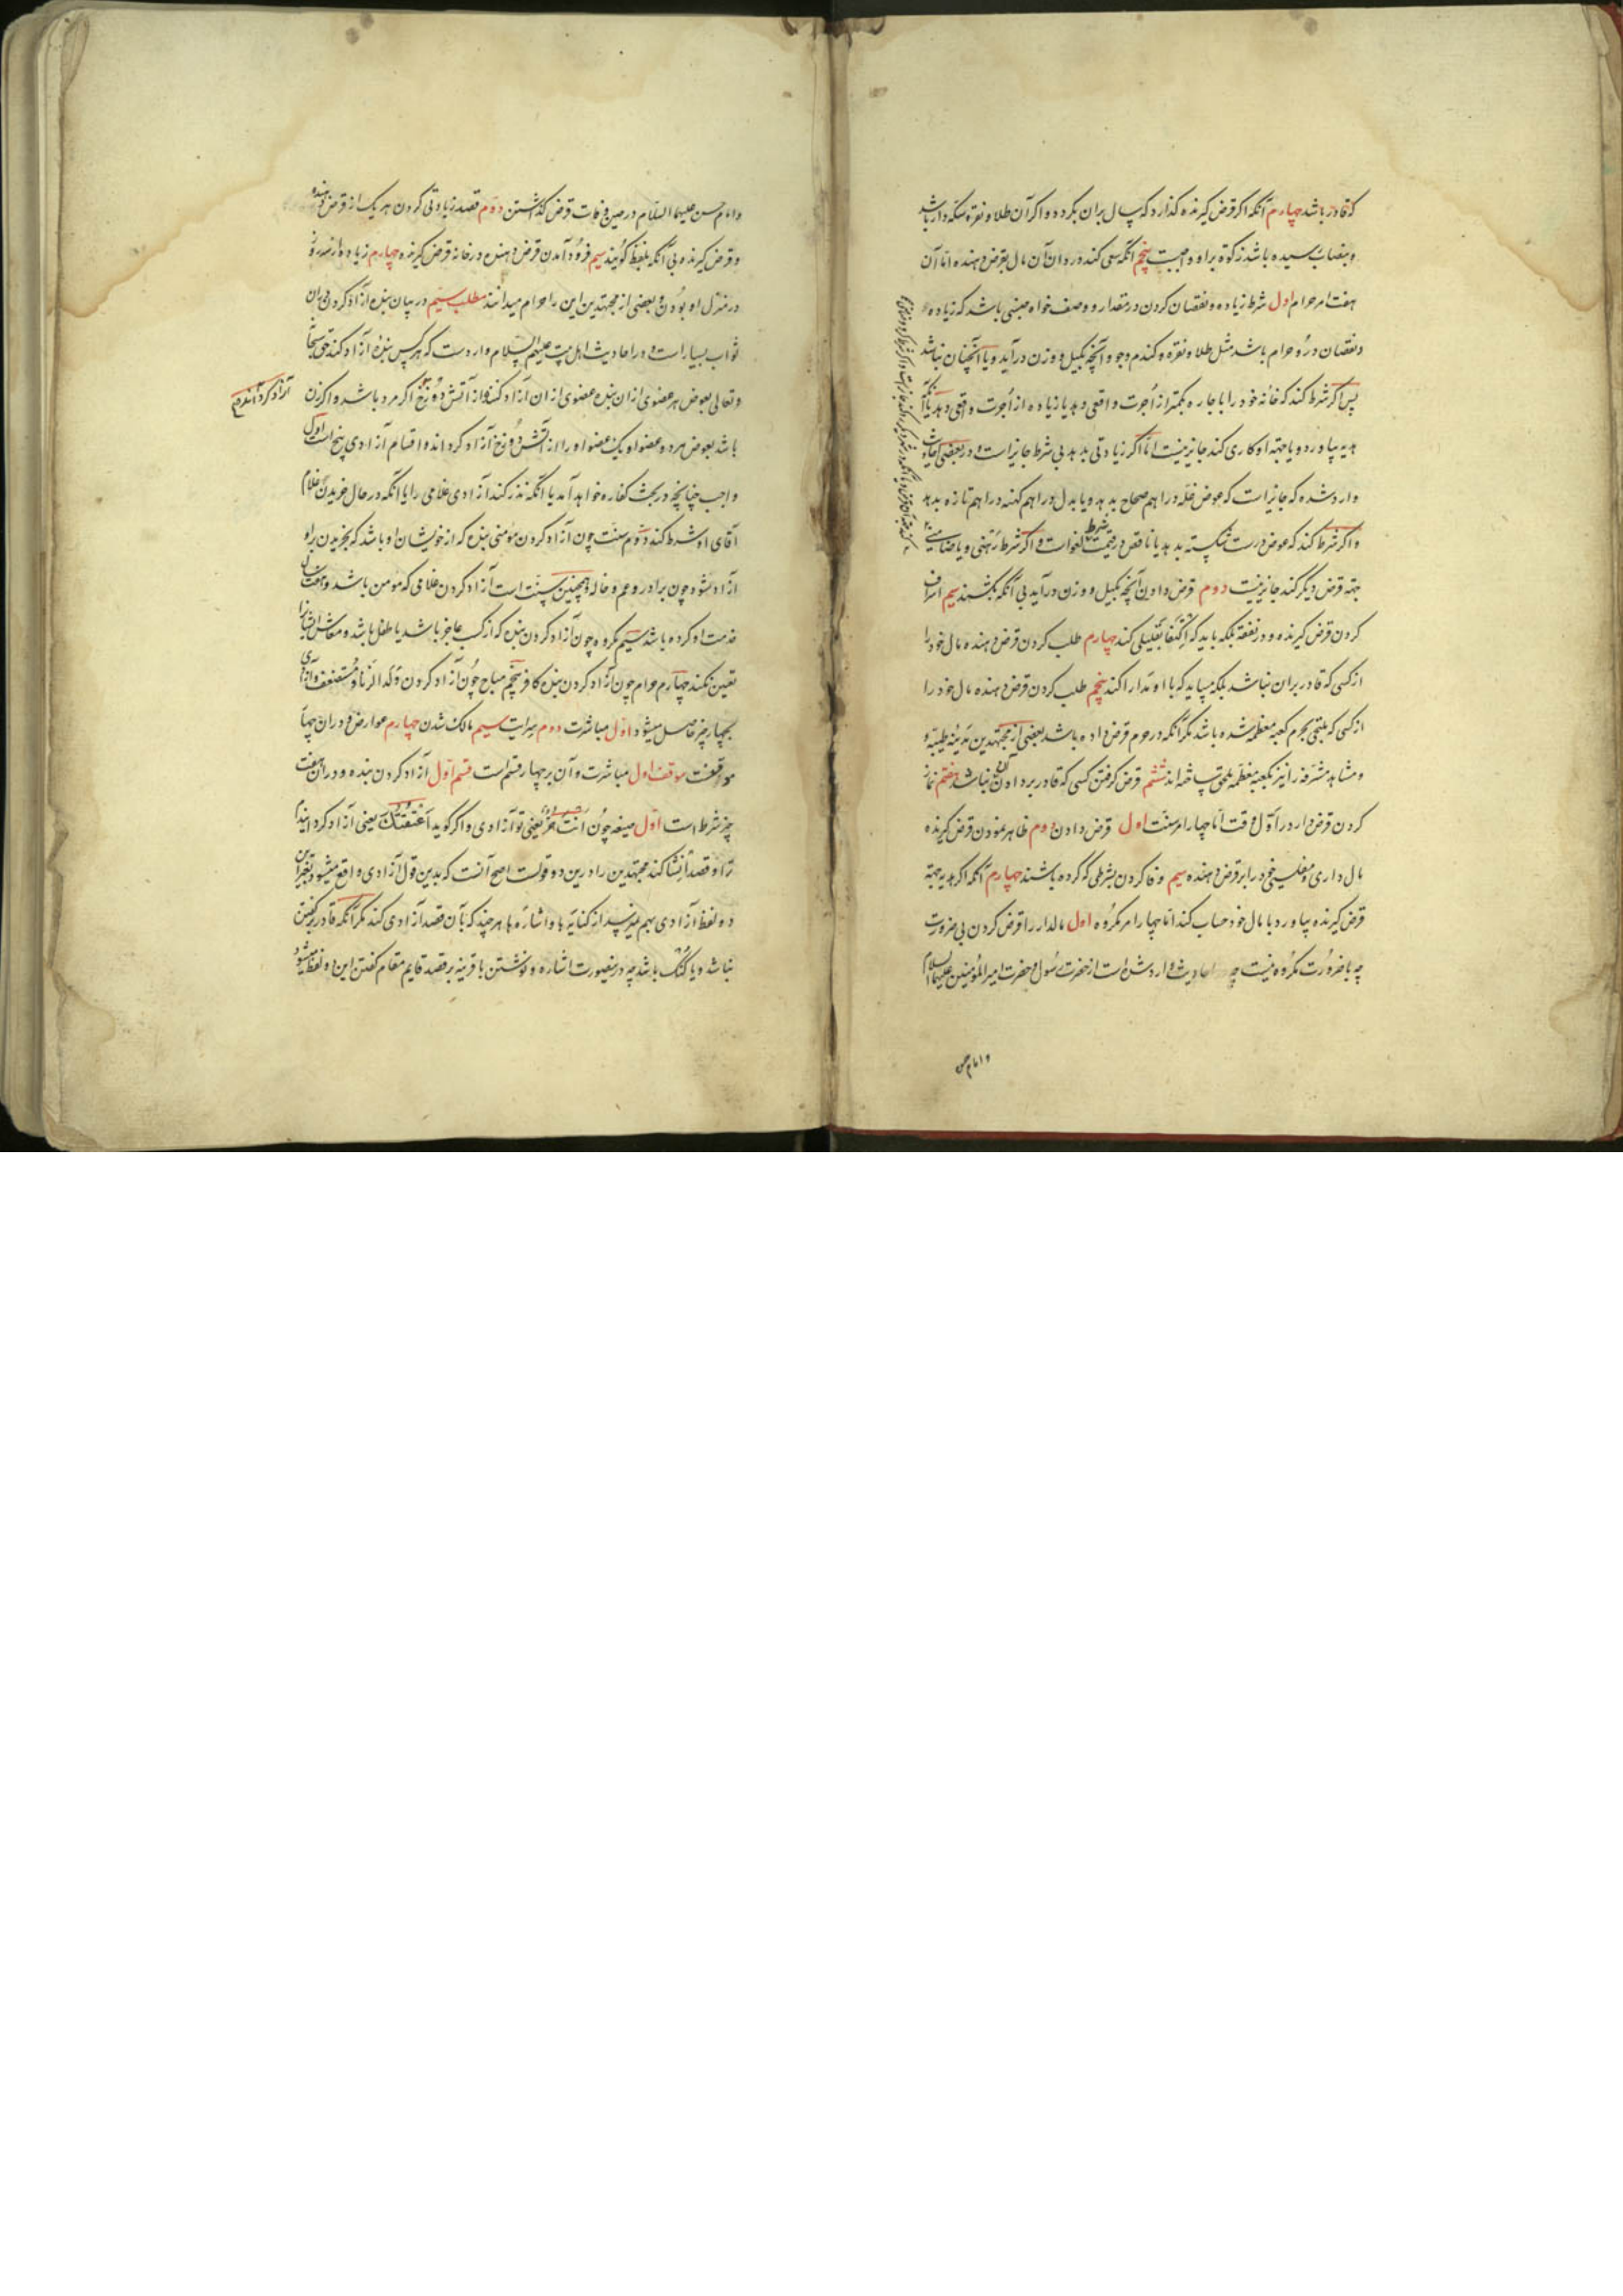 که قادر باشد چهارم آنکه اگر قرض گیرنده گذارد که یک سال بران بگردد و اگر آن طلا و نقره سکه دار باشد
و بنصاب رسیده باشد زکوة بر او واجبست پنجم آنکه سعی کند در دادن آن مال بقرض دهنده اما آن
هفت امر حرام اول شرط زیاده و نقصان کردن در مقدار و وصف خواه جنسی باشد که زیاده
و نقصان در او حرام باشد مثل طلا و نقره و گندم و جو و آنچه بکیل و وزن درآید و یا آنچنان نباشد
پس اگر شرط کند که خانه خود را باجاره بکمتر از اجرت واقعی دهد یا زیاده از اجرت واقعی دهد یا آنکه
هدیه بیاورد و یا جهة او کاری کند جایز نیست اما اگر زیادتی بدهد بی شرط جایز است و در بعضی احادیث
وارد شده که جایز است که عوض غله دراهم صحاح بدهد و یا بدل دراهم کهنه دراهم تازه بدهد
و اگر شرط کند که عوض درست شکسته بدهد یا ناقص در قیمت شرط لغو است و اگر شرط رهنی و یا ضامنی
جهة قرض دیگر کند جایز نیست دوم قرض دادن آنچه بکیل و وزن درآید بی آنکه بکشند سیم اسراف
کردن قرض گیرنده در نفقه بلکه باید که اکتفا بقلیلی کند چهارم طلب کردن قرض دهنده مال خود را
از کسی که قادر بران نباشد بلکه میباید که با او مدارا کند پنجم طلب کردن قرض دهنده مال خود را
از کسی که ملتجی بحرم کعبه معظمه شده باشد مگر آنکه در حرم قرض داده باشد بعضی از مجتهدین مدینه طیبه و
و مشاهد مشرفه را نیز بکعبه معظمه ملحق ساخته اند ششم قرض گرفتن کسی که قادر بر دادن آن نباشد هفتم نماز
کردن قرض دار در اول وقت اما چهار امر سنت اول قرض دادن دوم ظاهر نمودن قرض گیرنده
مال داری و مفلسی خود را بر قرض دهنده سیم وفا کردن بشرطی که کرده باشند چهارم آنکه اگر هدیه جهة
قرض گیرنده بیاورد با مال خود حساب کند اما چهار امر مکروه اول مالدار را قرض کردن بی ضرورت
چه با ضرورت مکروه نیست چه احادیث وارد شده است از حضرت رسول و حضرت امیر المؤمنین علیهما السلام
و امام حسن
و امام حسن علیهما السلام در حین وفات قرض گذاشتن دوم قصد زیادتی کردن هر یک از قرض دهنده
و قرض گیرنده بی آنکه بلفظ گویند سیم فرود آمدن قرض دهنده در خانه قرض گیرنده چهارم زیاده از سه روز
در منزل او بودن و بعضی از مجتهدین این را حرام میدانند مطلب سیم در بیان بنده آزاد کردن بران
ثواب بسیار است و در احادیث اهل بیت علیهم السلام وارد است که هر کس بنده آزاد کند حق سبحانه
و تعالی بعوض هر عضوی ازان بنده عضوی از ان آزاد کننده از آتش دوزخ اگر مرد باشد و اگر زن
آزاد کرد آنند دوم
باشد بعوض هر دو عضو او یک عضو او را از آتش دوزخ آزاد کرداند و اقسام آزادی پنج است اول
واجب چنانچه در بحث کفاره خواهد آمد یا آنکه نذر کند آزادی غلامی را یا آنکه در حال خریدن غلام
آقای او شرط کند دوم سنت چون آزاد کردن مومنی بنده که از خویشان او باشد که بخریدن بر او
آزاد نشود چون برادر و عم و خاله و همچنین سنت است آزاد کردن غلامی که مومن باشد و هفت سال
خدمت او کرده باشد سیم مکروه چون آزاد کردن بنده که از کسب عاجز باشد یا طفل باشد و معاش ایشانرا
تعیین نکند چهارم حرام چون آزاد کردن بنده کافر پنجم مباح چون آزاد کردن ولد الزنا و مستضعف و آزادی
بچهار چیز حاصل میشود اول مباشرت دوم سرایت سیم مالک شدن چهارم عوارض و در ان چهار
موقفست موقف اول مباشرت و آن بر چهار قسم است قسم اول آزاد کردن بنده و در ان هفت
چیز شرط است اول صیغه چون انت حر یعنی تو آزادی و اگر گوید اعتقتک یعنی آزاد کردانیدم
ترا و قصد انشا کند مجتهدین را درین دو قولست اصح آنست که بدین قول آزادی واقع میشود و بغیر این
دو لفظ آزادی بهم نمیرسد از کنایه ها و اشاره ها هر چند که بآن قصد آزادی کند مگر آنکه قادر بر گفتن
نباشد و یا گنگ باشد چه درینصورت اشاره و نوشتن با قرینه بر قصد قایم مقام گفتن این دو لفظ میشود